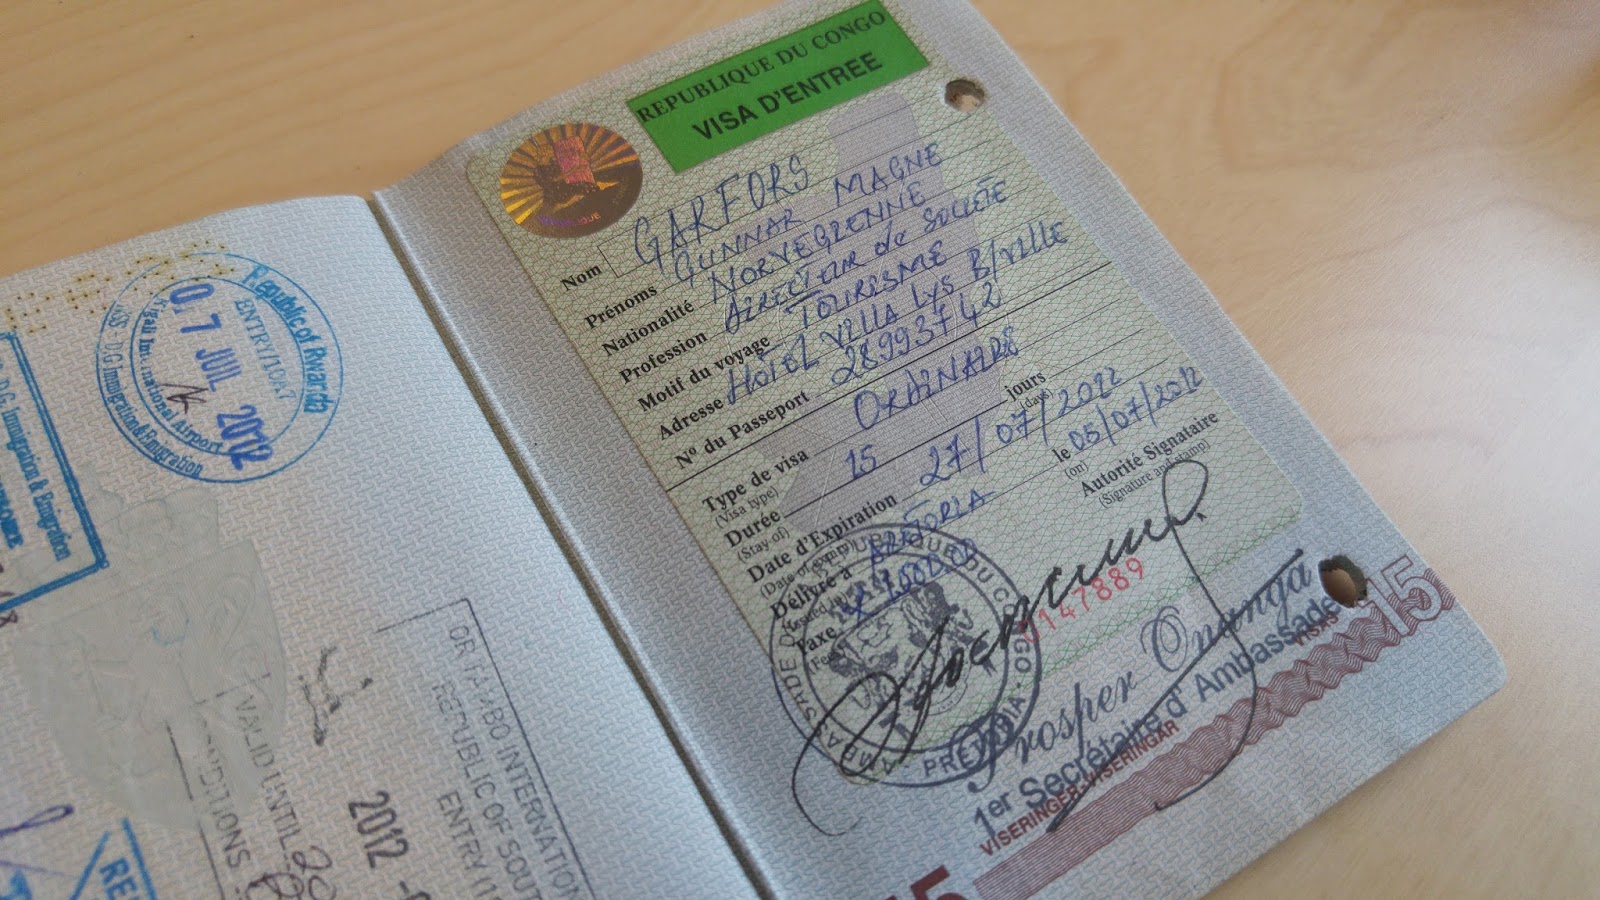 Republic of Rwanda
ENTRY/
07 JUIL 2012
Kigali International Airport
D.G. Immigration & Emigration
D.G. Immigration & Emigration
OR TAMBO INTERNATIONAL
REPUBLIC OF SOUT
ENTRY
2012
VALID UNTIL
CONDITIONS
REPUBLIQUE DU CONGO
VISA D'ENTREE
Nom GARFORS
Prénoms GUNNAR MAGNE
Nationalité NORVEGIENNE
Profession DIRECTEUR de SOCIETE
Motif du voyage TOURISME
Adresse HOTEL VILLA Lys B/VILLE
Nº du Passeport 28993742
Type de visa ORDINAIRE
(Visa type)
Durée 15 jours
(Stay of) (days)
Date d'Expiration 27/07/2012
Délivré à PRETORIA le 05/07/2012
(on)
Taxe
Autorité Signataire
(Signature and stamp)
0147889
AMBASSADE DE LA REPUBLIQUE DU CONGO
PRETORIA
Prosper Ononga
1er Secrétaire d'Ambassade
VISERINGER-VISERINGAR
VISAS
15
15